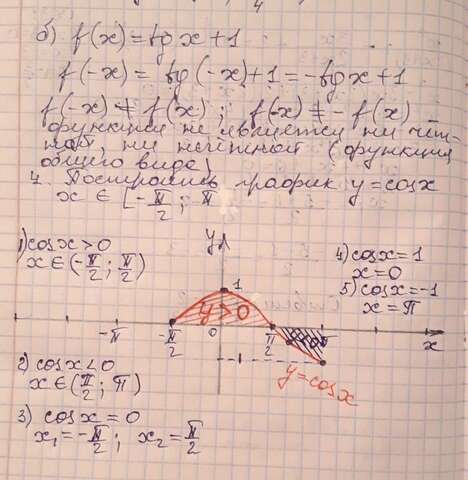 б) f(x) = tg x + 1
f(-x) = tg(-x)+1 = -tg x + 1
f(-x) ≠ f(x) ; f(-x) ≠ - f(x)
функция не является ни чёт-
ной, ни нечётной (функция
общего вида)
4. Построить график y = cosx
x ∈ [-π/2 ; π
1) cosx > 0
x ∈ (-π/2 ; π/2)
y
1
4) cosx = 1
x = 0
5) cosx = -1
x = π
y > 0
-π
-π/2
0
π/2
x
y = cosx
2) cosx < 0
x ∈ (π/2 ; π)
3) cosx = 0
x₁ = -π/2 ; x₂ = π/2